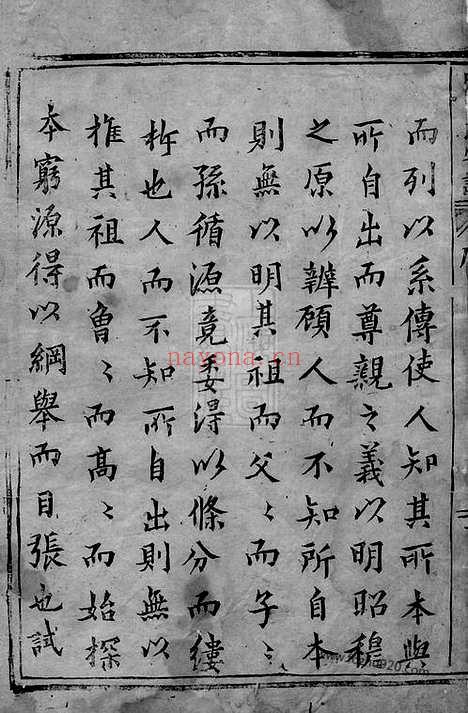 而列以系傳使人知其所本與
所自出而尊親之義以明昭穆
之原以辨顧人而不知所自本
則無以明其祖而父〻而子〻
而孫循源竟委得以條分而縷
析也人而不知所自出則無以
推其祖而曾〻而高〻而始探
本窮源得以綱舉而目張也試
nayona.cn